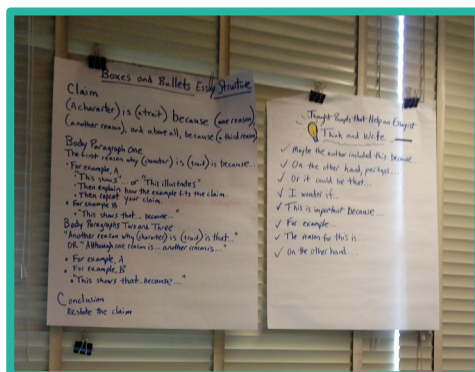 Boxes and Bullets Essay Structure
Claim
(A character) is (a trait) because (one reason),
(another reason), and above all, because (a third reason)
Body Paragraph One
The first reason why (character) is (trait) is because...
• For example, A
"This shows" or "This illustrates"
• Then explain how the example fits the claim.
• Then repeat your claim.
• For example B
• "This shows that... because..."
Body Paragraphs Two and Three
"Another reason why (character) is (trait) is that..."
OR "Although one reason is... another reason is..."
• For example, A
• For example, B
• "This shows that... because..."
Conclusion
Restate the claim
Thought Prompts that Help an Essayist
Think and Write
✓ Maybe the author included this because...
✓ On the other hand, perhaps...
✓ Or it could be that...
✓ I wonder if...
✓ This is important because...
✓ For example...
✓ The reason for this is...
✓ On the other hand...